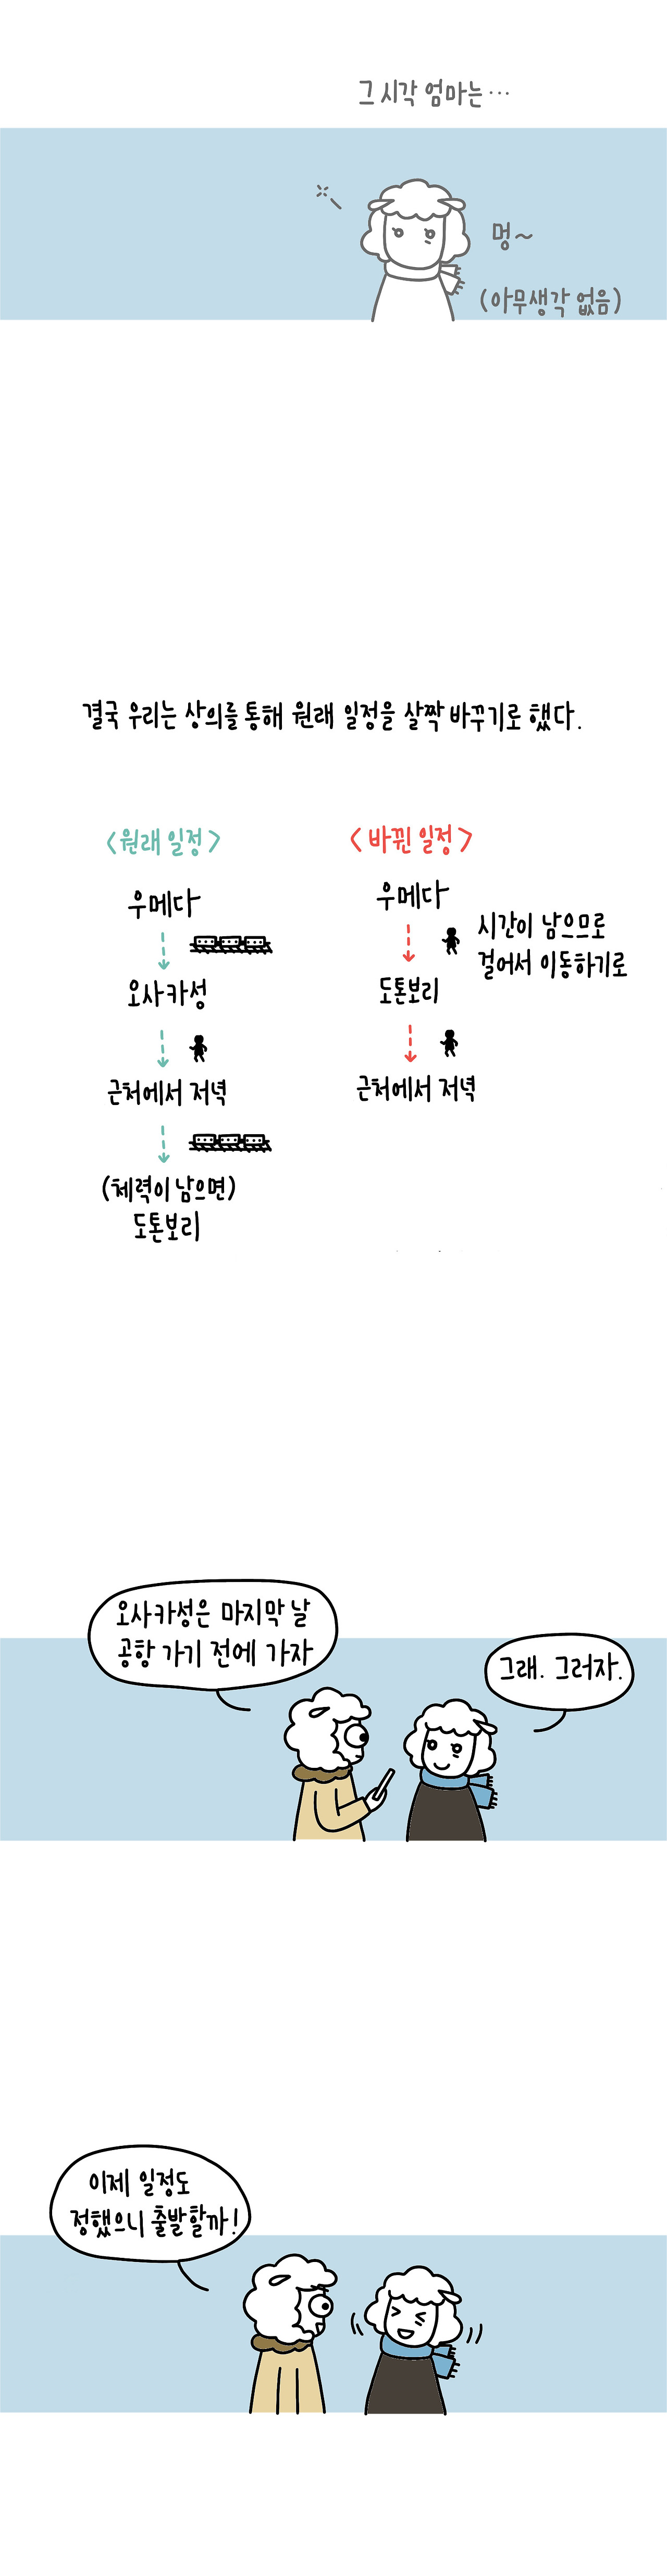 그 시각 엄마는…
멍~
(아무생각 없음)
결국 우리는 상의를 통해 원래 일정을 살짝 바꾸기로 했다.
<원래 일정>
우메다
오사카성
근처에서 저녁
(체력이 남으면)
도톤보리
<바뀐 일정>
우메다
시간이 남으므로
걸어서 이동하기로
도톤보리
근처에서 저녁
오사카성은 마지막 날
공항 가기 전에 가자
그래. 그러자.
이제 일정도
정했으니 출발할까!